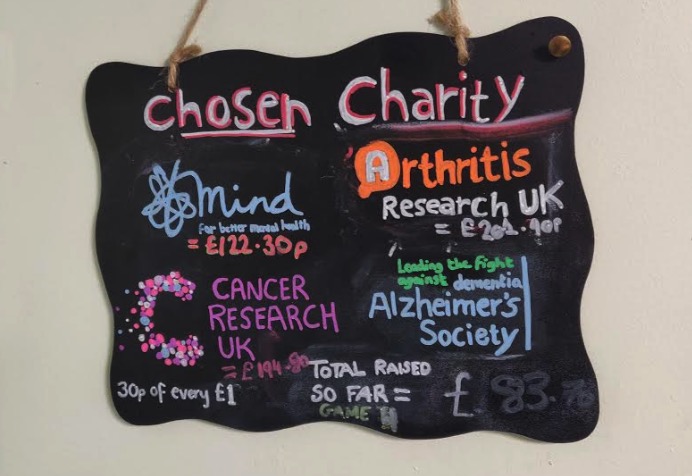 chosen Charity
Mind
for better mental health
= £122.30p
Arthritis
Research UK
= £201.90p
CANCER
RESEARCH
UK
= £194.80
Leading the fight
against dementia
Alzheimer's
Society
30p of every £1
TOTAL RAISED
SO FAR = £ 83.70
GAME